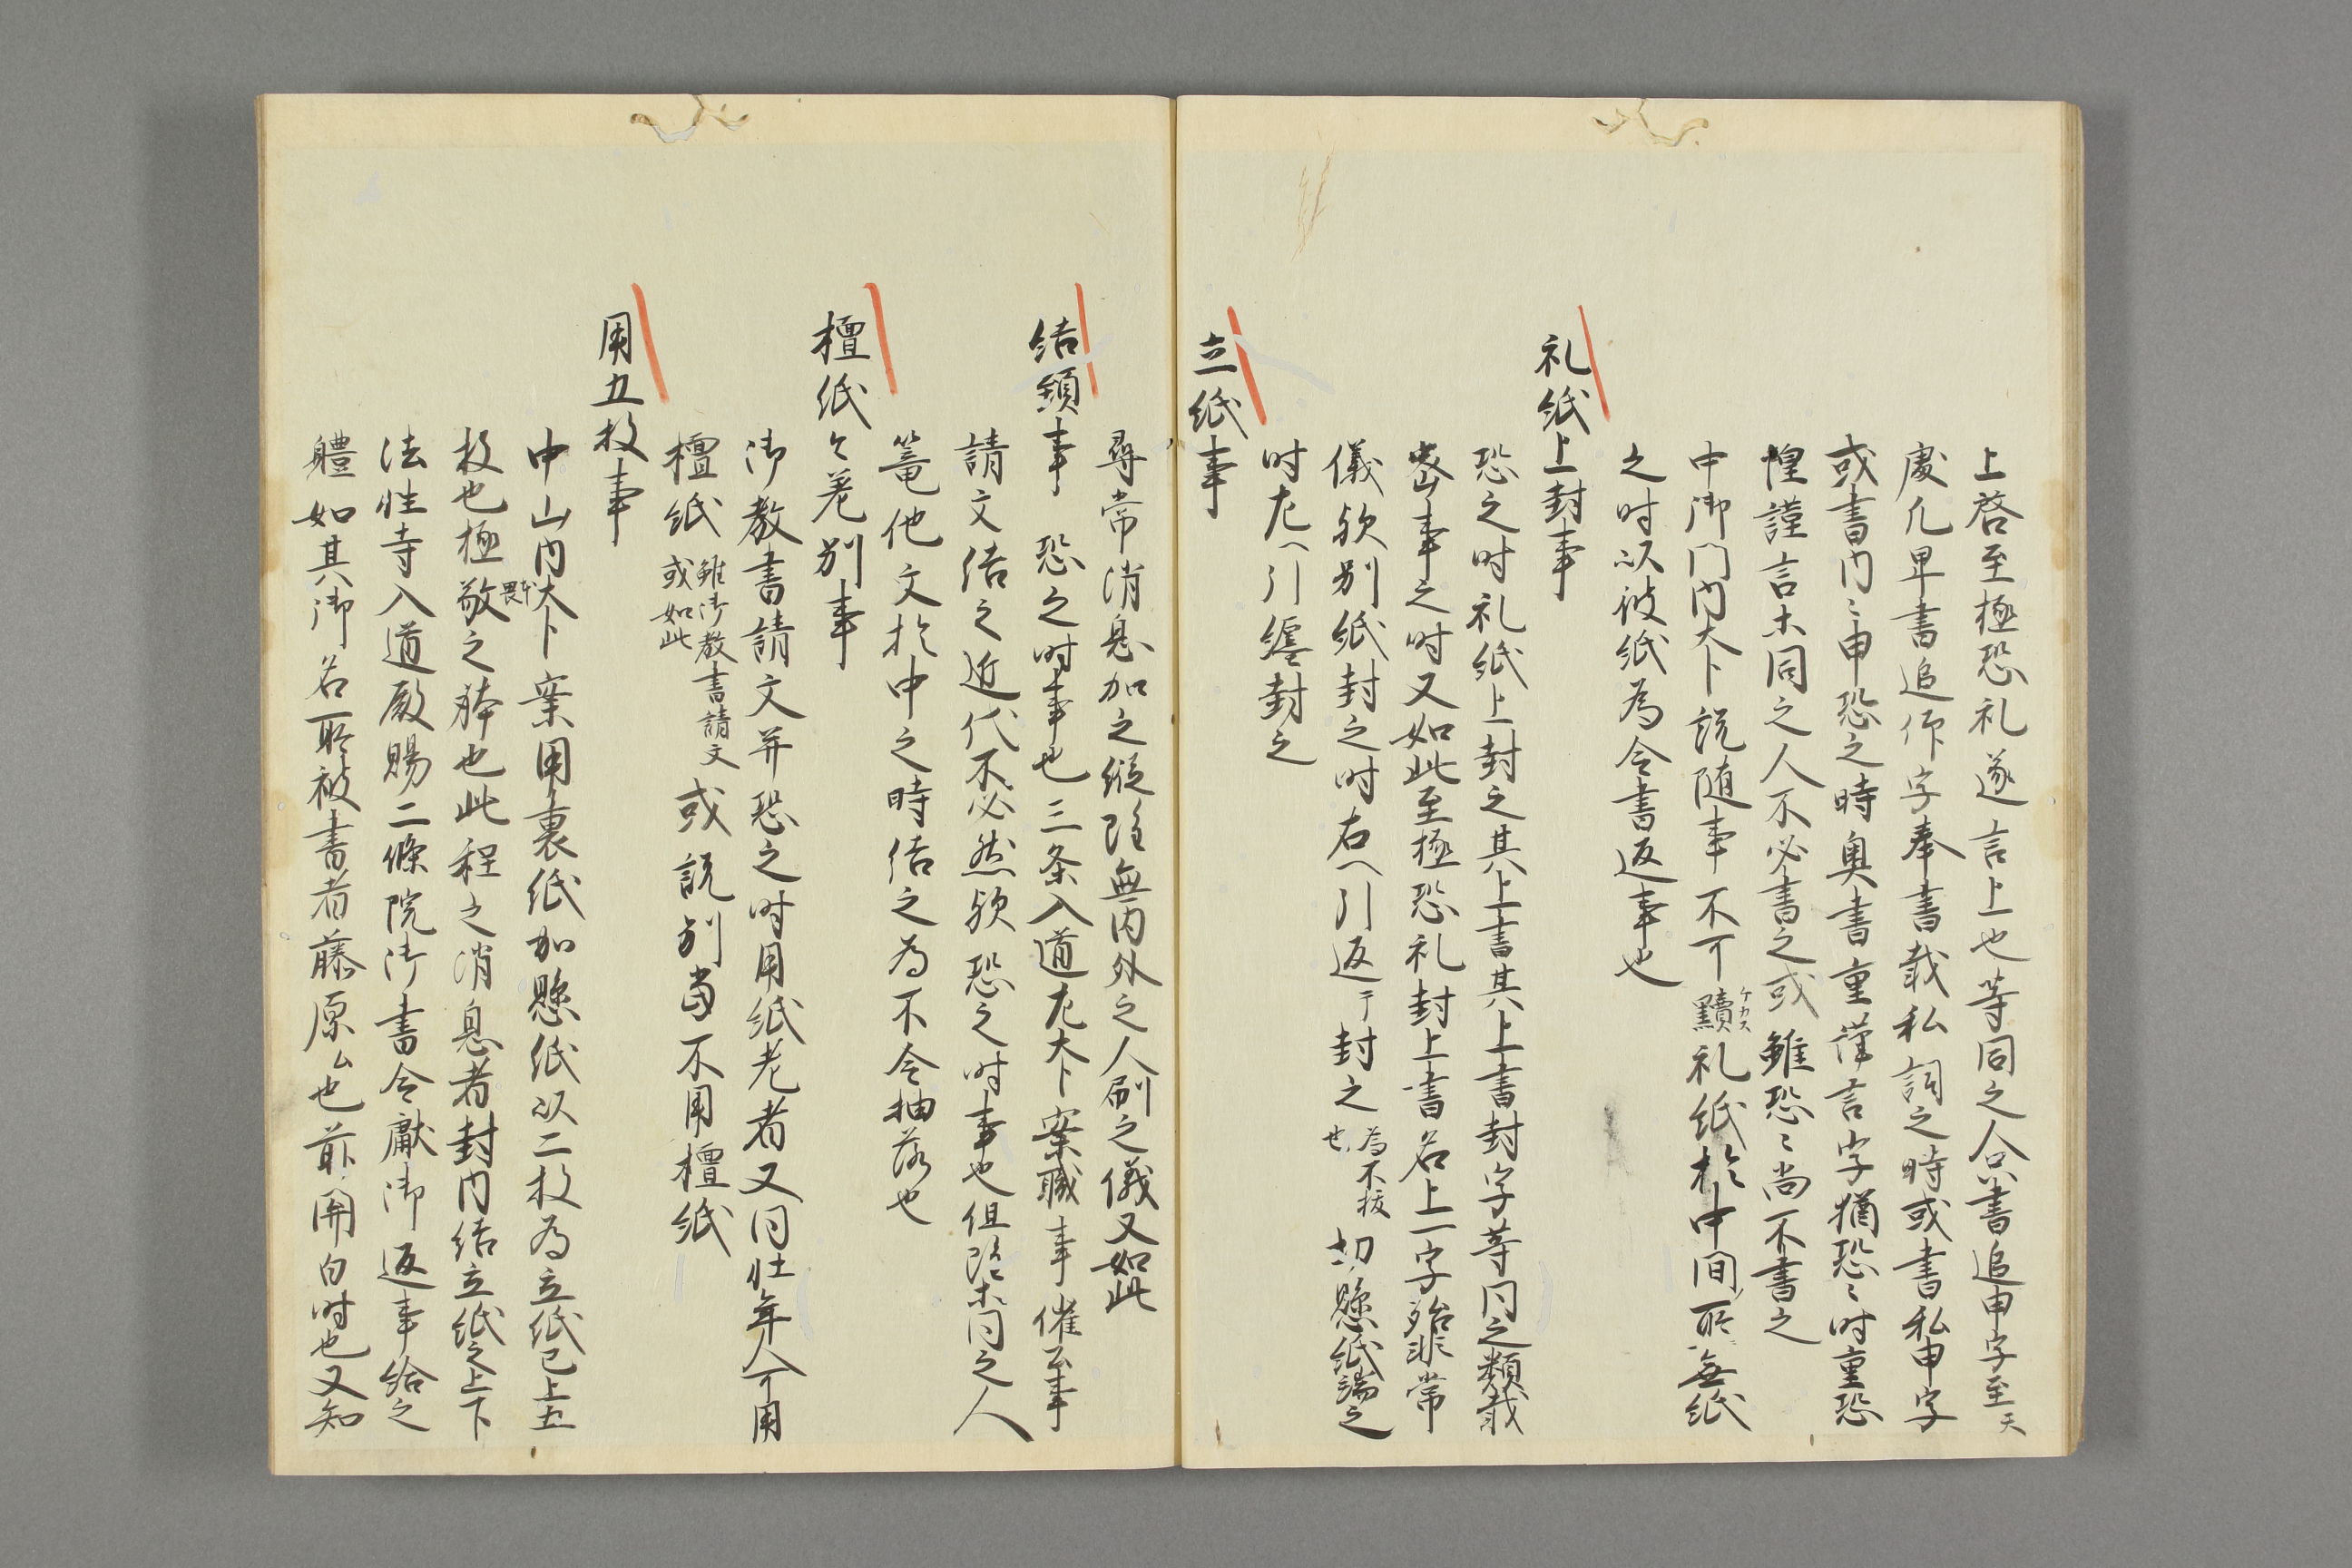 上啓至極恐礼遂言上也等同之人只書追申字至天
慶凢卑書追仰字奉書載私詞之時或書私申字
或書内〻申恐之時奥書重謹言字猶恐〻时重恐
惶謹言末同之人不必書之或雖恐〻尚不書之
中御門内大卜説随事不可黷ケカス礼紙於中間所無紙
之时以彼紙為令書返事也
礼紙上封事
恐之时礼紙上封之其上書其上書封字等同之類載
密事之时又如此至極恐礼封上書名上一字殆非常
儀歟別紙封之时右へ引返テ封之為不披也切懸紙端之
时左へ引纒封之
立紙事
尋常消息加之縦雖無内外之人刷之儀又如此
結頭事 恐之时事也三条入道左大卜案職事催公事
請文結之近代不必然歟恐之时事也但臨末同之人
篭他文於中之時結之為不令抽落也
檀紙〻差別事
御教書請文并恐之时用紙老者又同壮年人可用
檀紙雖御教書請文或如此或説別當不用檀紙
用五枚事
中山内大卜案用裏紙加懸紙以二枚為立紙已上五
枚也極敬之躰也此程之消息者封内結立紙之上下
法性寺入道殿賜二條院御書令獻御返事給之
軆如其御名所被書者藤原ム也前関白时也又知